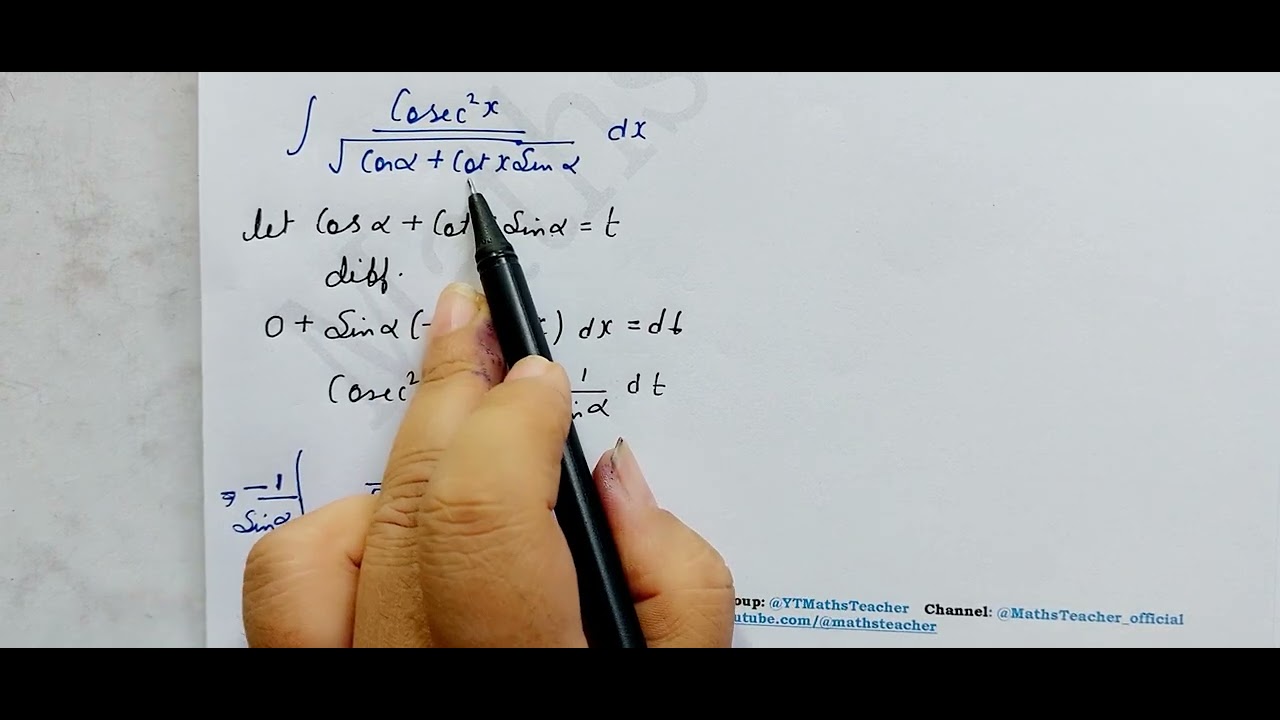 ∫ Cosec²x / √(Cosα + Cot x Sin α) dx
let Cos α + Cot Sinα = t
diff.
0 + Sinα (- ) dx = dt
Cosec² 1 / α dt
⇒ -1 / Sinα ∫
oup: @YTMathsTeacher Channel: @MathsTeacher_official
utube.com/@mathsteacher
Maths